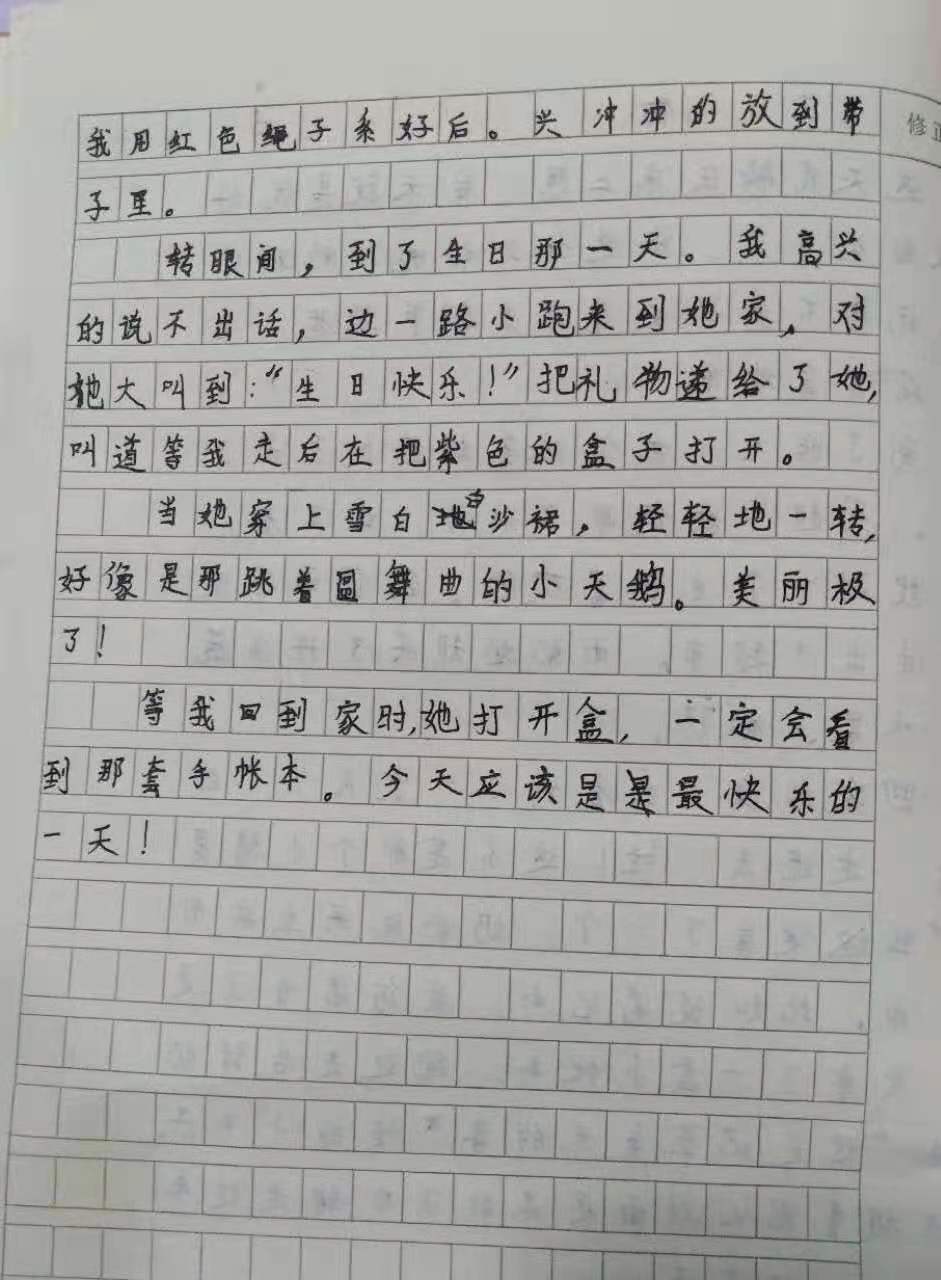 我用红色绳子系好后。兴冲冲的放到带
修正
子里。
转眼间，到了生日那一天。我高兴
的说不出话，边一路小跑来到她家，对
她大叫到：“生日快乐！”把礼物递给了她，
叫道等我走后在把紫色的盒子打开。
当她穿上雪白白沙裙，轻轻地一转，
好像是那跳着圆舞曲的小天鹅。美丽极
了！
等我回到家时，她打开盒，一定会看
到那套手帐本。今天应该是是最快乐的
一天！